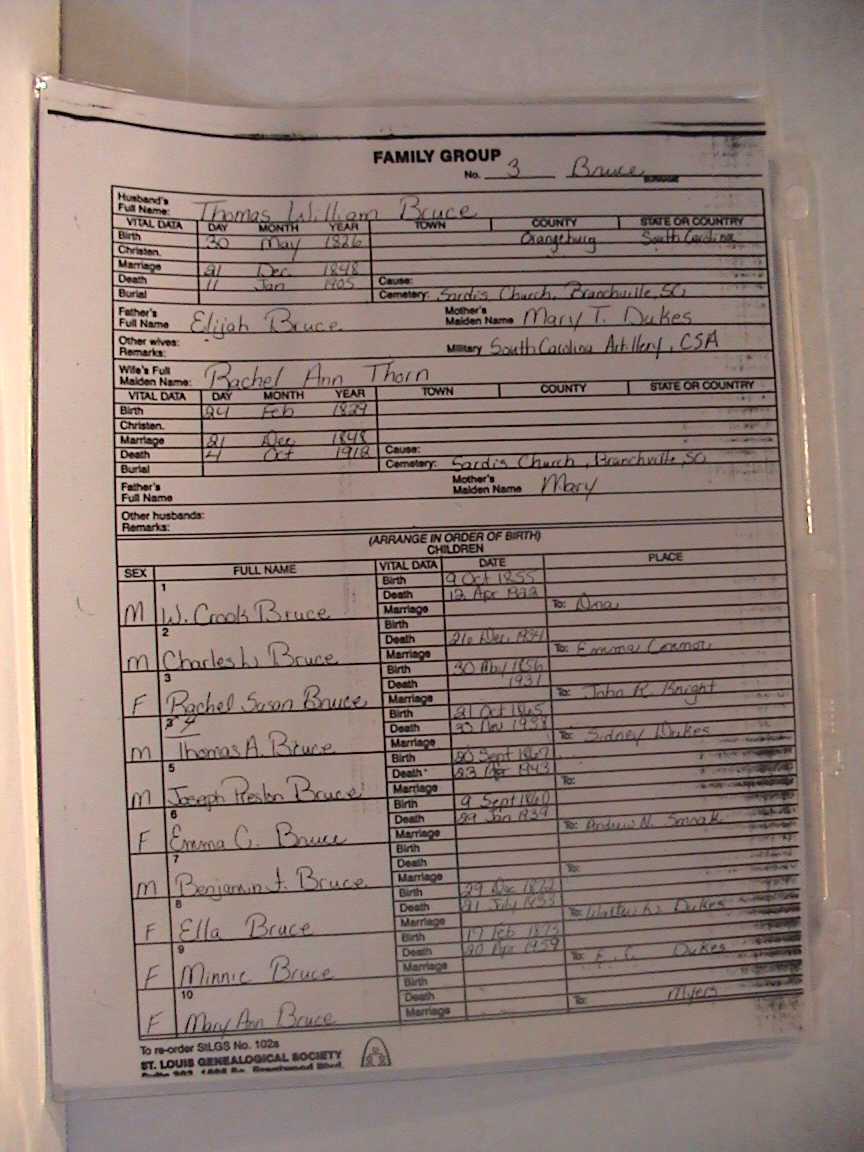 FAMILY GROUP
No. 3 Bruce
Husband's Full Name: Thomas William Bruce
VITAL DATA DAY MONTH YEAR TOWN COUNTY STATE OR COUNTRY
Birth 30 May 1826 Orangeburg South Carolina
Christen.
Marriage 21 Dec. 1848
Death 11 Jan 1905 Cause:
Burial Cemetery: Sardis Church, Branchville, SC
Father's Full Name Elijah Bruce Mother's Maiden Name Mary T. Dukes
Other wives:
Remarks: Military South Carolina Artillery, CSA
Wife's Full Maiden Name: Rachel Ann Thorn
VITAL DATA DAY MONTH YEAR TOWN COUNTY STATE OR COUNTRY
Birth 24 Feb 1829
Christen.
Marriage 21 Dec 1848
Death 4 Oct 1918 Cause:
Burial Cemetery: Sardis Church, Branchville, SC
Father's Full Name Mother's Maiden Name Mary
Other husbands:
Remarks:
(ARRANGE IN ORDER OF BIRTH)
CHILDREN
SEX FULL NAME VITAL DATA DATE PLACE
1 Birth 9 Oct 1855
Death 12 Apr 1922
M W. Crook Bruce Marriage To:
2 Birth
Death 26 Dec.
M Charles W Bruce Marriage To: Emma Connor
3 Birth 30 May 1856
Death 1931
F Rachel Susan Bruce Marriage To: John R. Knight
4 Birth 21 Oct 1865
Death Nov 1938
M Thomas A. Bruce Marriage To: Sidney Dukes
5 Birth 20 Sept 1867
Death 23 Apr 1943
M Joseph Preston Bruce Marriage To:
6 Birth 9 Sept 1860
Death 29 Jan 1939
F Emma C. Bruce Marriage To: Andrew N. Smoak
7 Birth
Death
M Benjamin F. Bruce Marriage To:
8 Birth 29 Dec 1872
Death 21 July
F Ella Bruce Marriage To: Walter W Dukes
9 Birth 17 Feb 1875
Death 20 Apr 1959
F Minnie Bruce Marriage To: Dukes
10 Birth
Death
F Mary Ann Bruce Marriage To: Myers
To re-order StLGS No. 102a
ST. LOUIS GENEALOGICAL SOCIETY